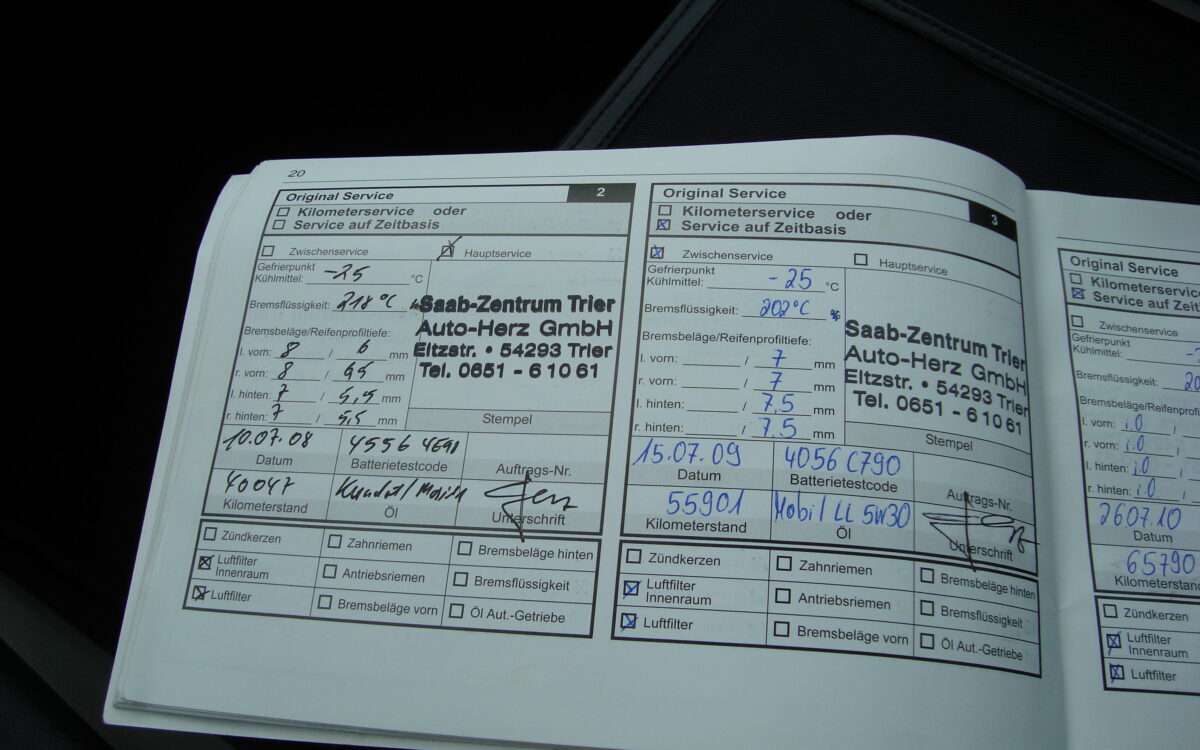 20
Original Service 2
Kilometerservice oder
Service auf Zeitbasis
Zwischenservice Hauptservice
Gefrierpunkt
Kühlmittel: -25 °C
Bremsflüssigkeit: 218°C
Saab-Zentrum Trier
Auto-Herz GmbH
Eltzstr. • 54293 Trier
Tel. 0651 - 6 10 61
Bremsbeläge/Reifenprofiltiefe:
l. vorn: 8 / 6 mm
r. vorn: 8 / mm
l. hinten: 7 / 5,5 mm
r. hinten: 7 / 5,5 mm
Stempel
10.07.08 4556 4E90
Datum Batterietestcode Auftrags-Nr.
40047
Kilometerstand Öl Unterschrift
Zündkerzen Zahnriemen Bremsbeläge hinten
Luftfilter
Innenraum Antriebsriemen Bremsflüssigkeit
Luftfilter Bremsbeläge vorn Öl Aut.-Getriebe
Original Service 3
Kilometerservice oder
Service auf Zeitbasis
Zwischenservice Hauptservice
Gefrierpunkt
Kühlmittel: -25 °C
Bremsflüssigkeit: 202°C %
Saab-Zentrum Trier
Auto-Herz GmbH
Eltzstr. • 54293 Trier
Tel. 0651 - 6 10 61
Bremsbeläge/Reifenprofiltiefe:
l. vorn: / 7 mm
r. vorn: / 7 mm
l. hinten: / 7,5 mm
r. hinten: / 7,5 mm
Stempel
15.07.09 4056 C790
Datum Batterietestcode Auftrags-Nr.
55901 Mobil LL 5W30
Kilometerstand Öl Unterschrift
Zündkerzen Zahnriemen Bremsbeläge hinten
Luftfilter
Innenraum Antriebsriemen Bremsflüssigkeit
Luftfilter Bremsbeläge vorn Öl Aut.-Getriebe
Original Service
Kilometerservice
Service auf Zeit
Zwischenservice
Gefrierpunkt
Kühlmittel:
Bremsflüssigkeit: 20
Bremsbeläge/Reifenprofil
l. vorn: i.O /
r. vorn: i.O
l. hinten: i.O
r. hinten: i.O
2607.10
Datum
65790
Kilometerstand
Zündkerzen
Luftfilter
Innenraum
Luftfilter